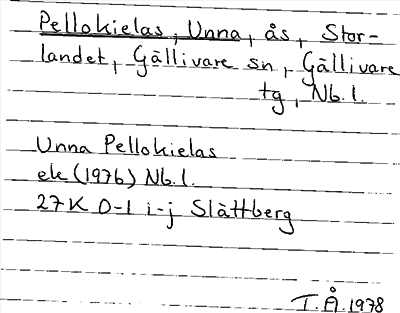 Pellokielas, Unna, ås, Stor-
landet, Gällivare sn, Gällivare
tg, Nb.l.
Unna Pellokielas
ek (1976) Nb.l.
27K 0-1 i-j Slättberg
I.Å.1978